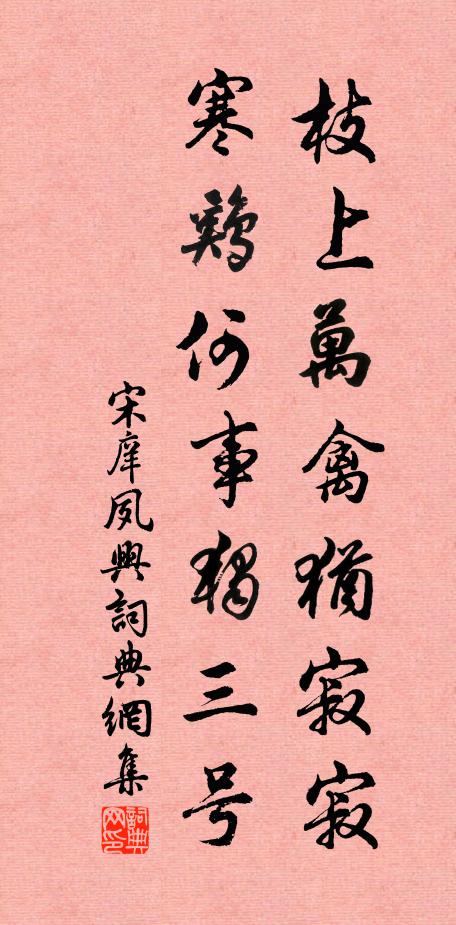 枝上萬禽猶寂寂
寒鷄何事獨三号
宋庠夙興詞典網集
詞典网印